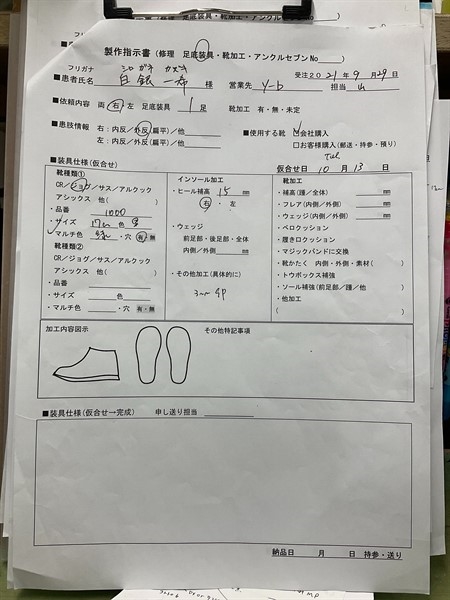 製作指示書（修理 足底装具・靴加工・アンクルセブンNo＿＿）
フリガナ シロガネ カズキ
受注2021年9月29日
■患者氏名 白銀 一希 様 営業先 Y-b 担当 山
■依頼内容 両 右 左 足底装具 1足 靴加工 有・無・未定
■患肢情報 右：内反/外反(扁平)/他 ■使用する靴 ☑会社購入
左：内反/外反(扁平)/他 □お客様購入(郵送・持参・預り)
■装具仕様(仮合せ) 仮合せ日 10月13日
靴種類① インソール加工 靴加工
CR/ジョグ/サス/アルクック ・ヒール補高 15 ㎜ ・補高(踵/全体) ㎜
アシックス 他( ) 右・左 ・フレア(内側/外側) ㎜
・品番 1000 ・ウェッジ(内側/外側) ㎜
・サイズ 17cm 色 ・ウェッジ ・ベロクッション
・マルチ色 ・穴 有・無 前足部・後足部・全体 ・履き口クッション
靴種類② 内側/外側 ・マジックバンドに交換
CR/ジョグ/サス/アルクック ・靴かたく 内側・外側・素材( )
アシックス 他( ) ・その他加工(具体的に) ・トウボックス補強
・品番 3mm ・ソール補強(前足部/踵/他 )
・サイズ 色 ・他加工
・マルチ色 ・穴 有・無 ( )
加工内容図示 その他特記事項
■装具仕様(仮合せ→完成) 申し送り担当
納品日 月 日 持参・送り